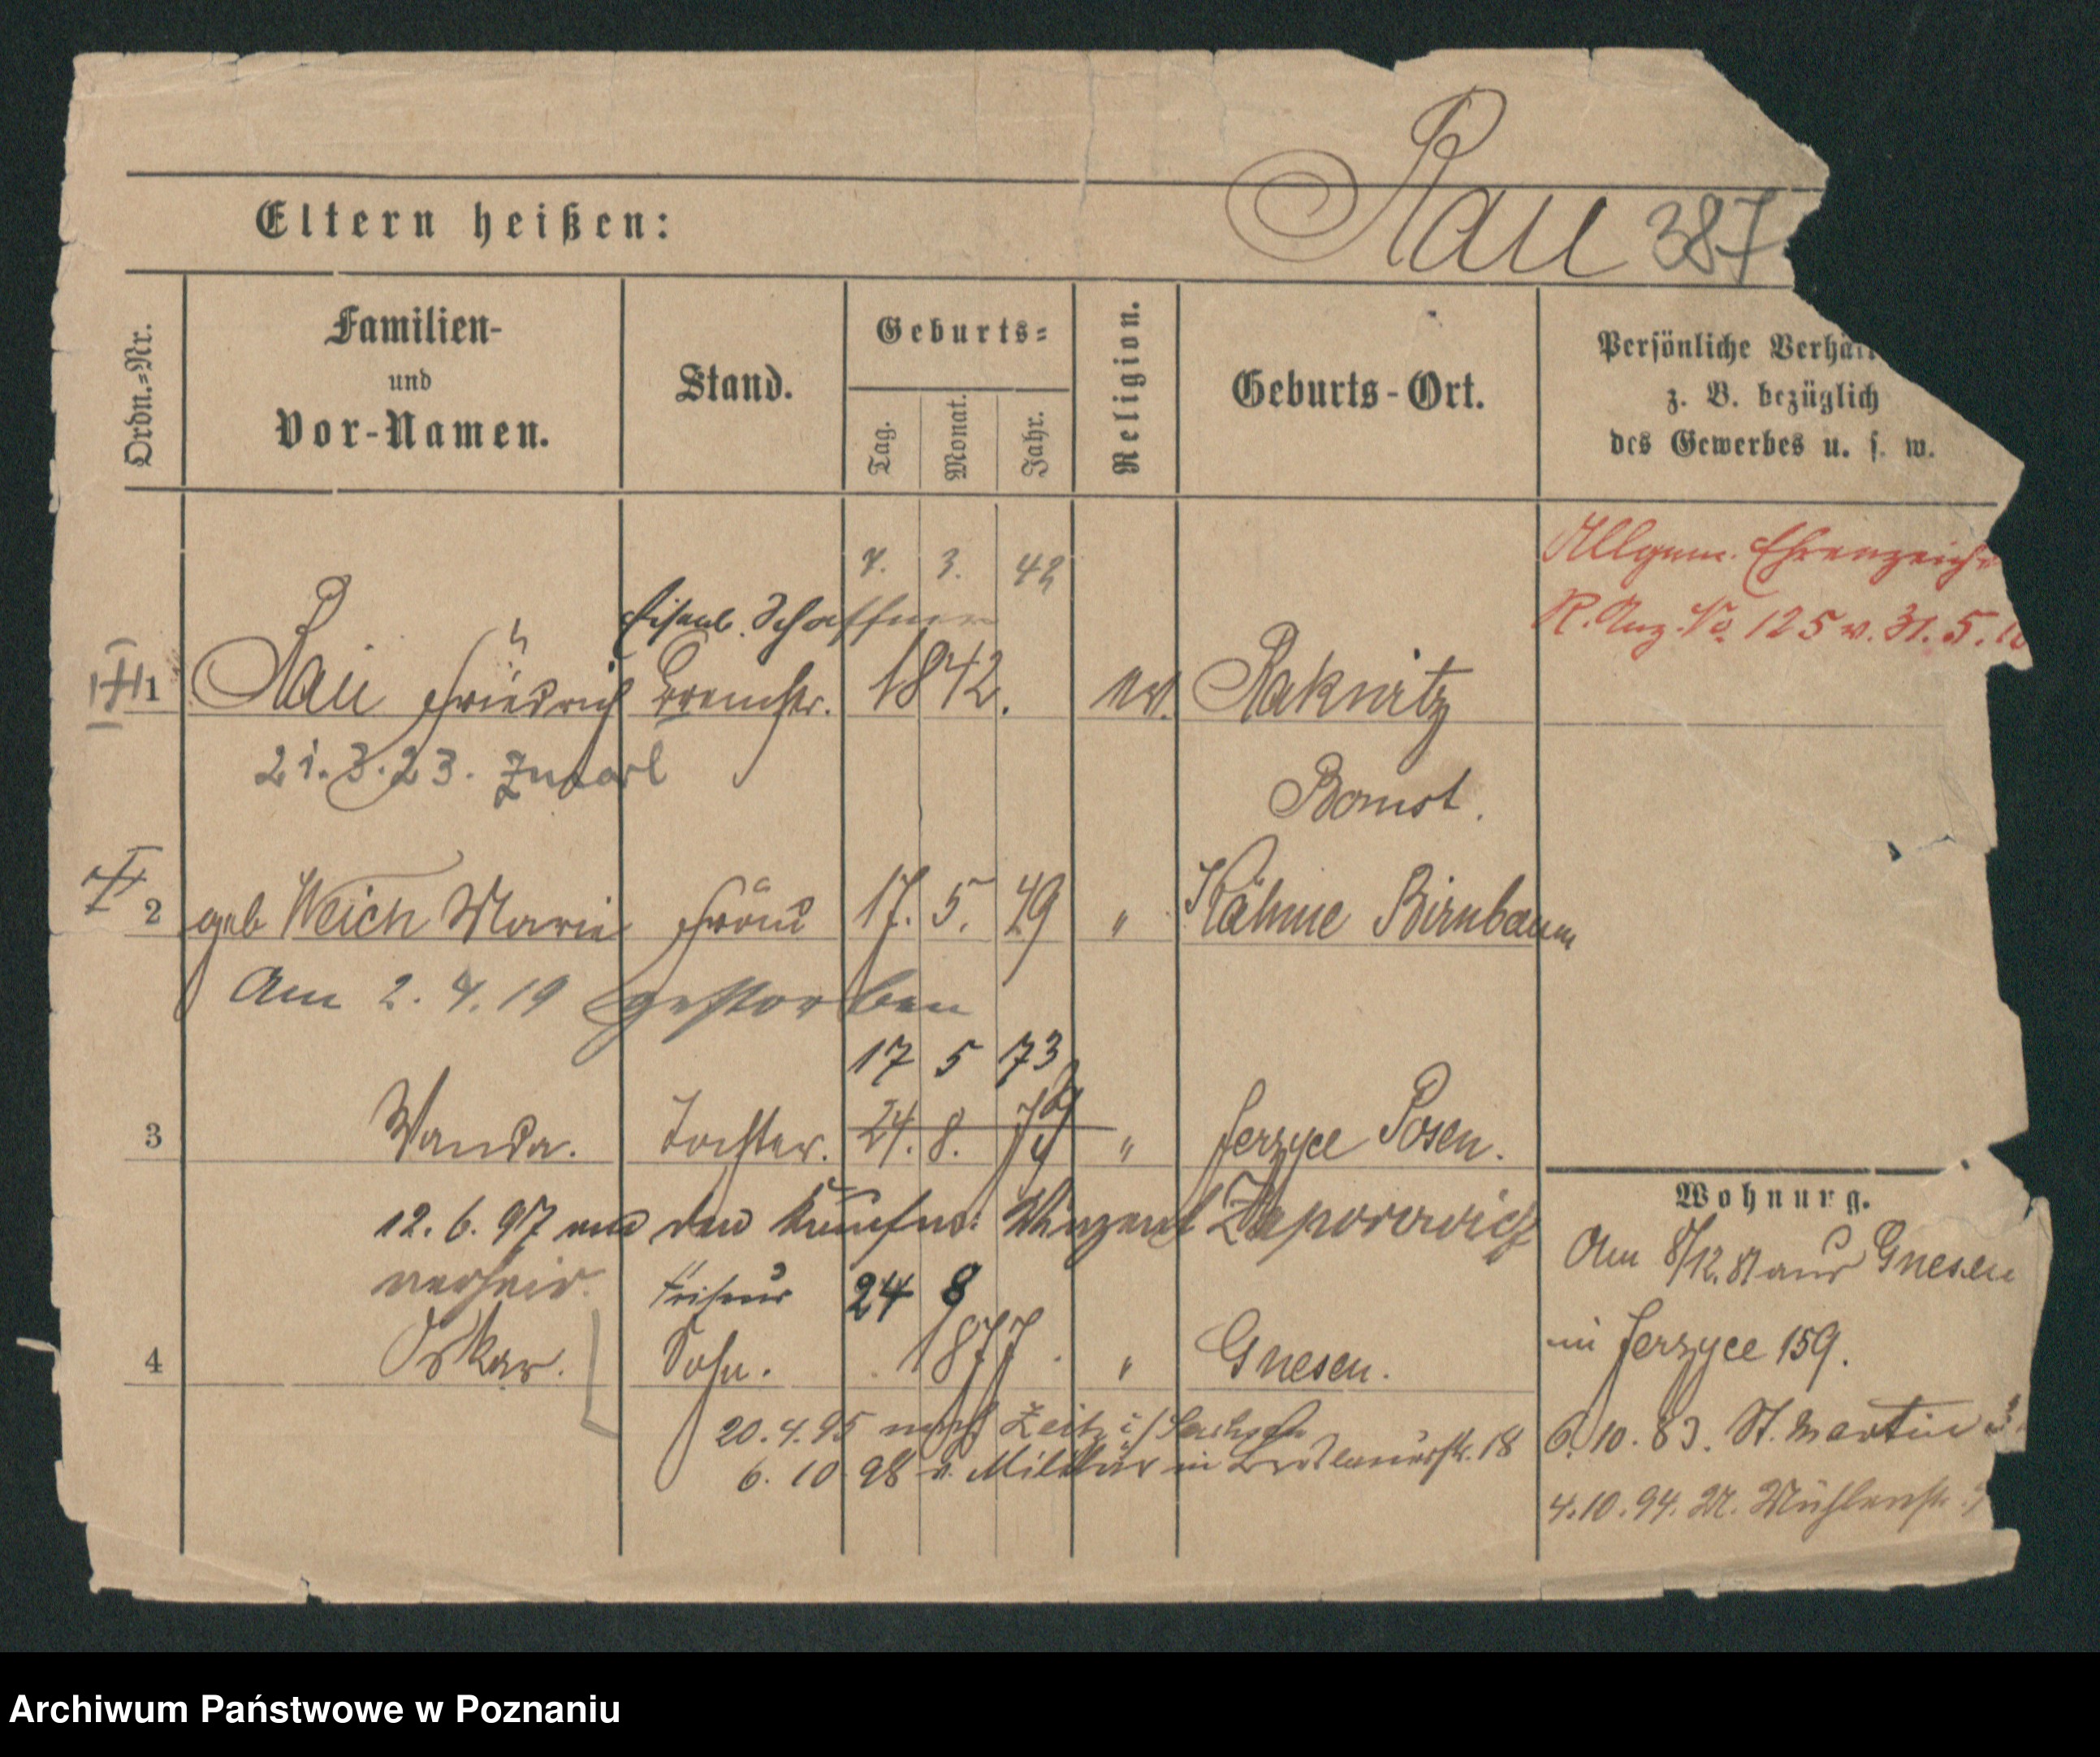 Rau 387
Eltern heißen:
Ordn.=Nr.
Familien-
und
Vor-Namen.
Stand.
Geburts=
Tag.
Monat.
Jahr.
Religion.
Geburts-Ort.
Persönliche Verhäl
z. B. bezüglich
des Gewerbes u. s. w.
7. 3. 42
Allgem. Ehrenzeich
R. Anz. No 125 v. 31. 5.
Eisenb. Schaffner
1 Rau Friedrich Bremser. 1842. ev. Raknitz
21. 3. 23.
Bomst.
2 geb Weich Marie Frau 17. 5. 49 " Kähme Birnbaum
Am 2. 4. 19 gestorben
17 5 73
3 Wanda. Tochter. 24. 8. " Jerzyce Posen.
12. 6. 97 den Kaufm. Zaporowicz
verheir.
Friseur 24 8
4 Oskar. Sohn. 1877. " Gnesen.
20. 4. 95 nach Zeitz i/Sachsen
6. 10. 98 v. Militär in 18
Wohnung.
Am 8/12. 81 aus Gnesen
in Jerzyce 159.
6. 10. 83. St. Martin
4. 10. 94. Mühlenstr.
Archiwum Państwowe w Poznaniu